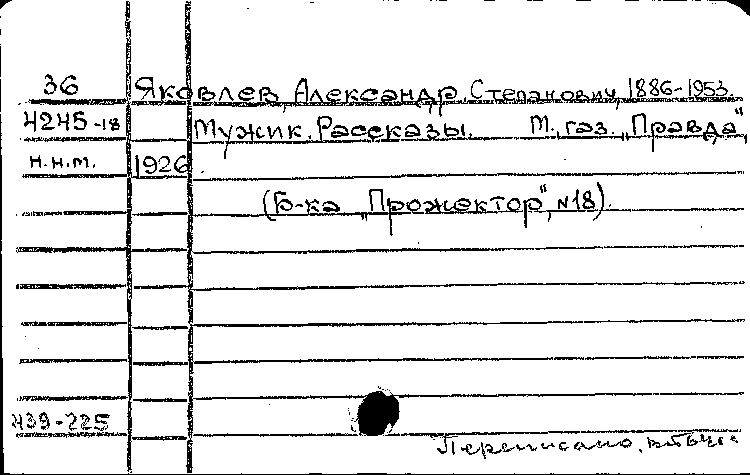 36 Яковлев, Александр Степанович, 1886-1953.
4245-18 Мужик. Рассказы. М., газ. „Правда",
н.н.м. 1926
(Б-ка „Прожектор", №18).
439-225
Переписано,